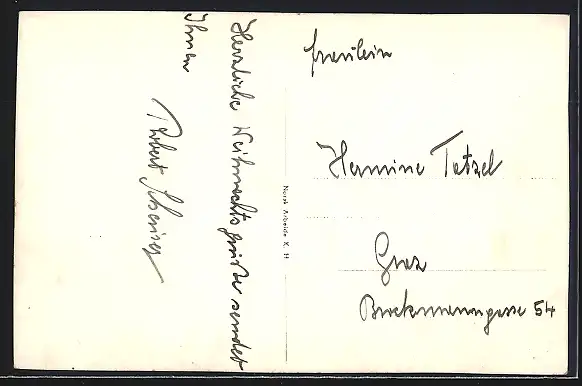 Herzliche Weihnachtsgrüße sendet
Ihnen
Robert
Norsk Arbeide K. H
Fräulein
Hermine Tatzel
Graz
Brockmanngasse 54